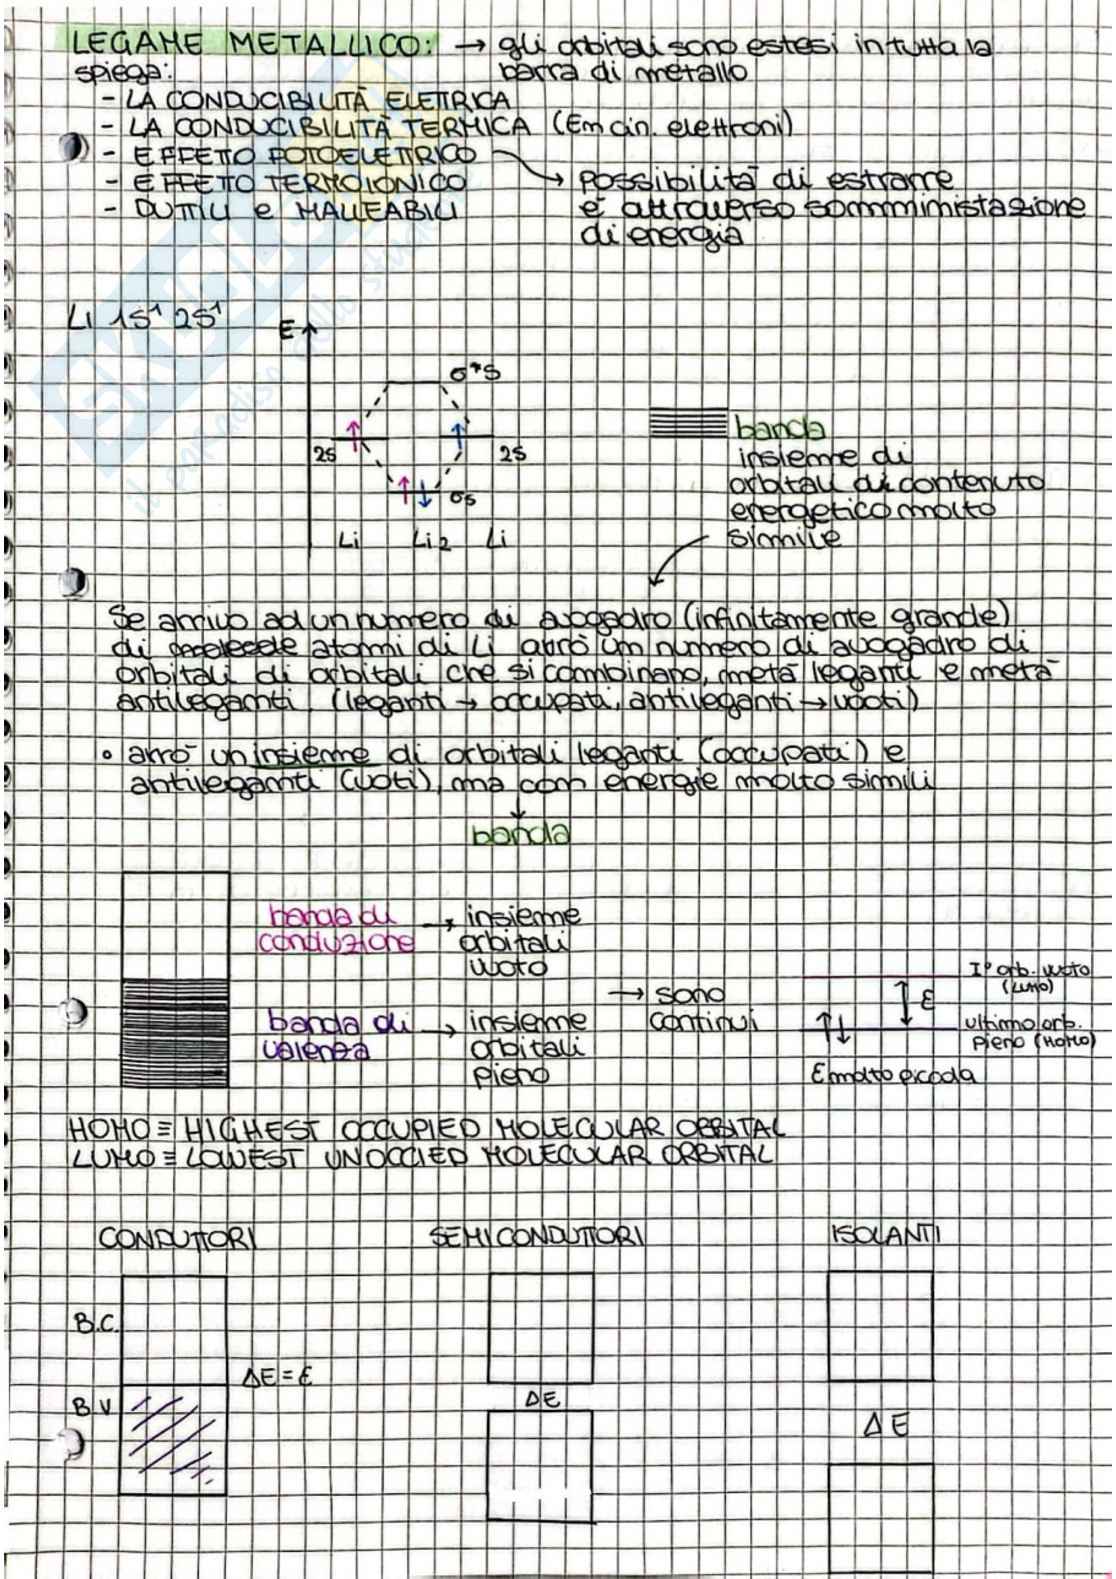 LEGAME METALLICO: → gli orbitali sono estesi in tutta la
spiega: barra di metallo
- LA CONDUCIBILITÀ ELETTRICA
- LA CONDUCIBILITÀ TERMICA (Em cin. elettroni)
- EFFETTO FOTOELETTRICO
- EFFETTO TERMOIONICO → possibilità di estrarre
- DUTTILI e MALLEABILI e⁻ attraverso sommministrazione
di energia
SKUOLA
il paradiso dello studente
Li 1s¹ 2s¹
E
σ*s
2s 2s
σs
Li Li2 Li
banda
insieme di
orbitali di contenuto
energetico molto
simile
Se arrivo ad un numero di avogadro (infinitamente grande)
di atomi di Li avrò un numero di avogadro di
orbitali di orbitali che si combinano, metà leganti e metà
antileganti (leganti → occupati, antileganti → vuoti)
• avrò un insieme di orbitali leganti (occupati) e
antileganti (vuoti), ma con energie molto simili
banda
banda di conduzione → insieme orbitali vuoto
banda di valenza → insieme orbitali pieno
→ sono continui
I° orb. vuoto (LUMO)
ε
ultimo orb. pieno (HOMO)
E molto piccola
HOMO ≡ HIGHEST OCCUPIED MOLECULAR ORBITAL
LUMO ≡ LOWEST UNOCCIED MOLECULAR ORBITAL
CONDUTTORI SEMICONDUTTORI ISOLANTI
B.C.
ΔE = ε
B V
ΔE
ΔE